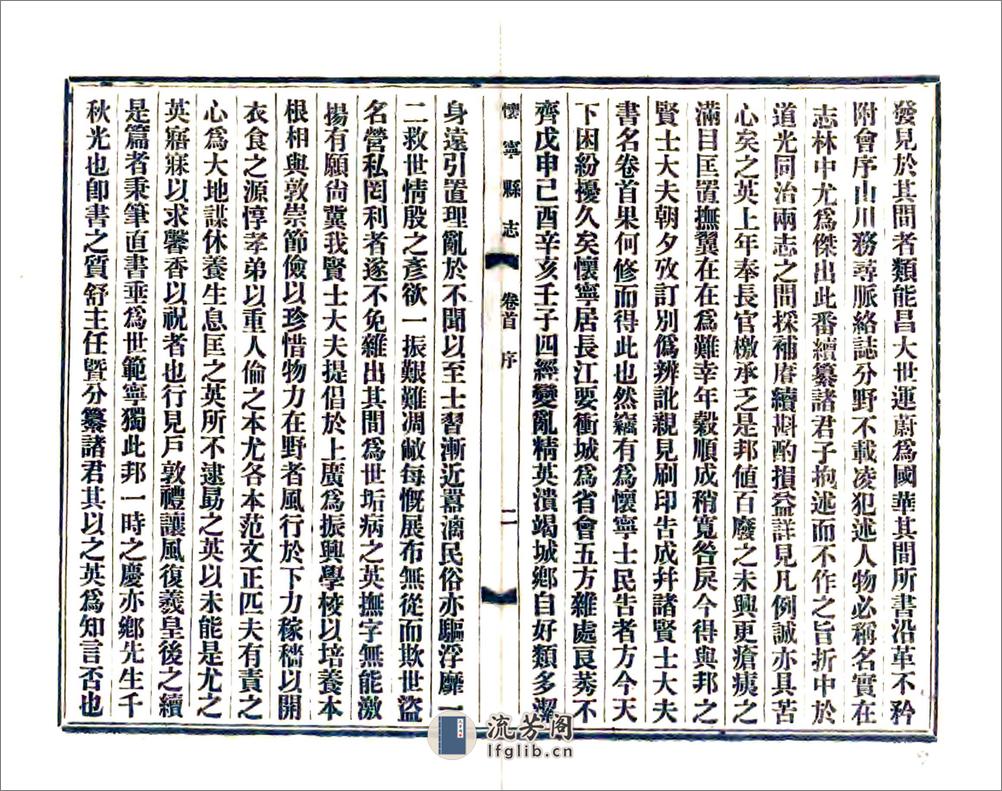 發見於其間者類能昌大世運蔚爲國華其間所書沿革不矜
附會序山川務尋脈絡誌分野不載凌犯述人物必稱名實在
志林中尤爲傑出此番續纂諸君子抱述而不作之旨折中於
道光同治兩志之間採補賡續斟酌損益詳見凡例誠亦具苦
心矣之英上年奉長官檄承乏是邦値百廢之未興更瘡痍之
滿目匡置撫翼在在爲難幸年穀順成稍寬咎戾今得與邦之
賢士大夫朝夕攷訂別僞辨訛親見刷印告成幷諸賢士大夫
書名卷首果何修而得此也然竊有爲懷寧士民告者方今天
下困紛擾久矣懷寧居長江要衝城爲省會五方雜處良莠不
齊戊申己酉辛亥壬子四經變亂精英潰竭城鄉自好類多潔
懷寧縣志 卷首 序 二
身遠引置理亂於不聞以至士習漸近囂漓民俗亦驅浮靡一
二救世情殷之彥欲一振艱難凋敝每慨展布無從而欺世盜
名營私罔利者遂不免雜出其間爲世垢病之英撫字無能激
揚有願尙冀我賢士大夫提倡於上廣爲振興學校以培養本
根相與敦崇節儉以珍惜物力在野者風行於下力稼穡以開
衣食之源惇孝弟以重人倫之本尤各本范文正匹夫有責之
心爲大地謀休養生息匡之英所不逮勗之英以未能是尤之
英寤寐以求馨香以祝者也行見戶敦禮讓風復羲皇後之續
是篇者秉筆直書垂爲世範寧獨此邦一時之慶亦鄉先生千
秋光也卽書之質舒主任暨分纂諸君其以之英爲知言否也
流芳閣
lfglib.cn